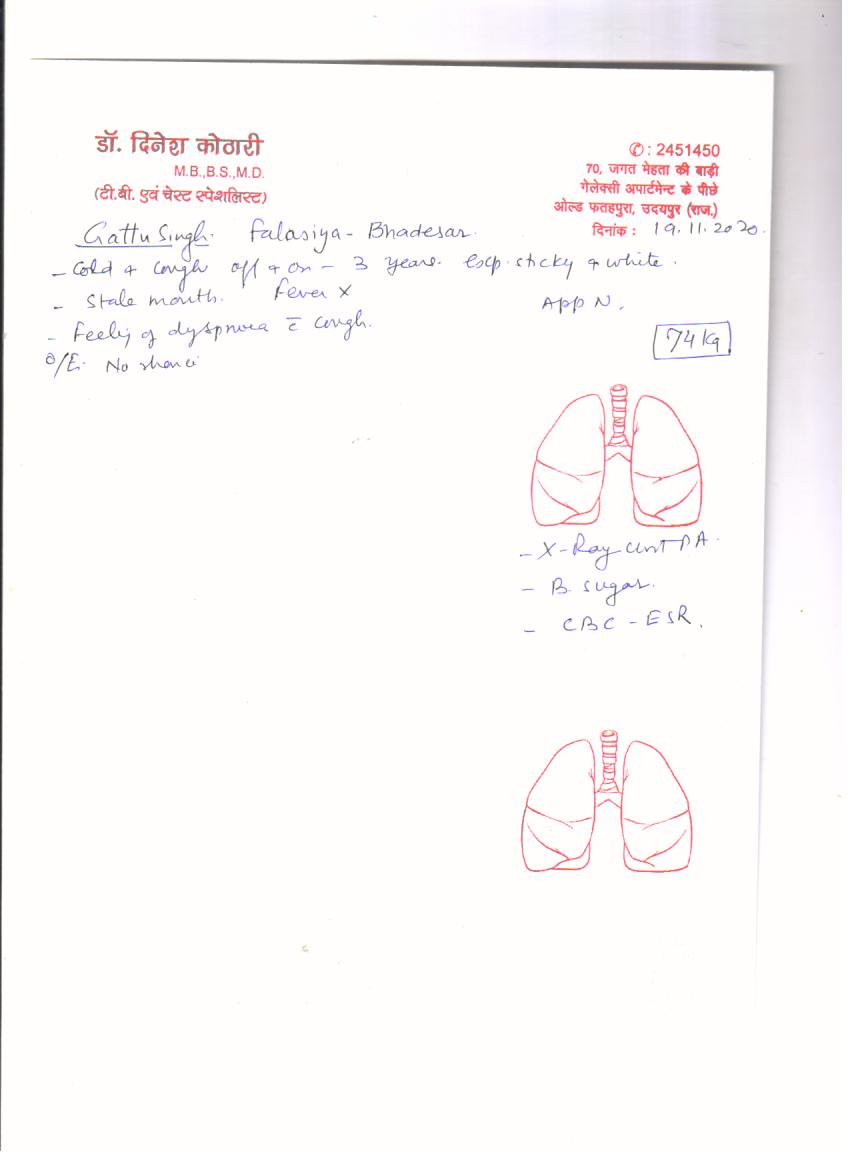 डॉ. दिनेश कोठारी
M.B.,B.S.,M.D.
(टी.बी. एवं चेस्ट स्पेशलिस्ट)
✆: 2451450
70, जगत मेहता की बाड़ी
गेलेक्सी अपार्टमेन्ट के पीछे
ओल्ड फतहपुरा, उदयपुर (राज.)
दिनांक : 19.11.2020.
Gattu Singh. Falasiya - Bhadesar.
- Cold + Cough off + on - 3 years. Exp. sticky + white.
- Stale mouth. Fever X
App N.
- Feeling of dyspnoea c̄ cough.
74 Kg
O/E. No
- X-Ray PA.
- B. sugar.
- CBC - ESR.